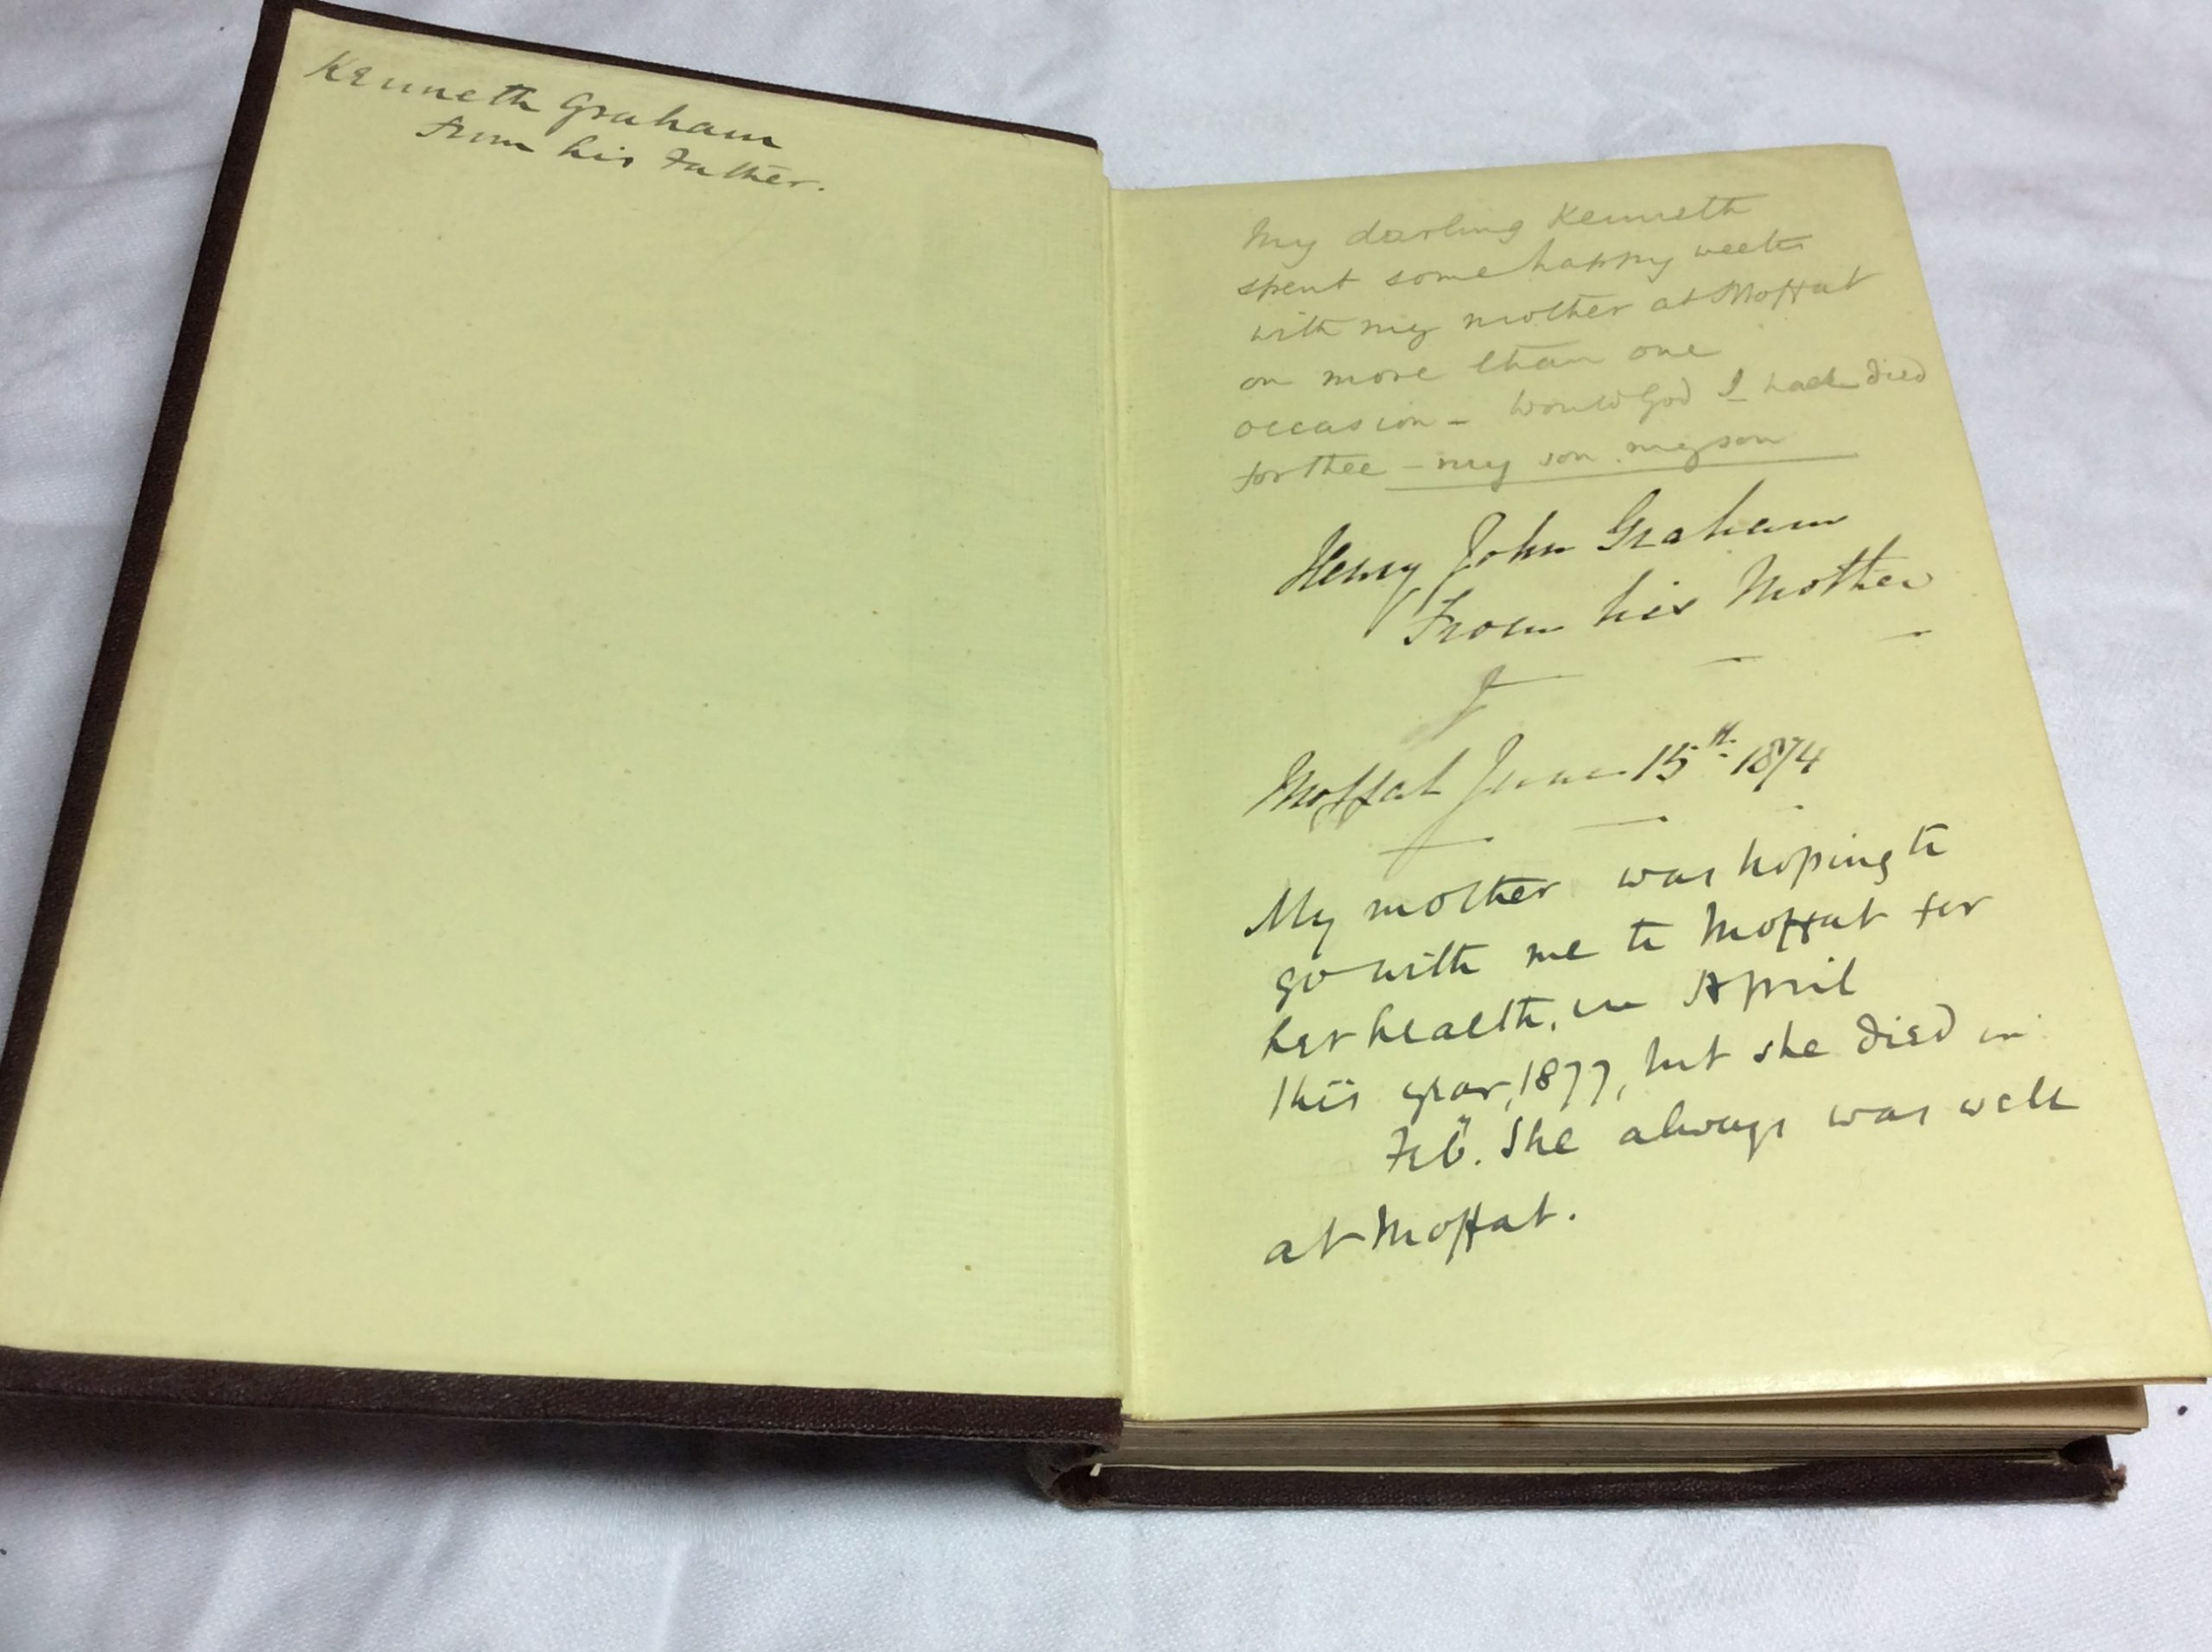 Kenneth Graham
From his Father.
My darling Kenneth
spent some happy weeks
with my mother at Moffat
on more than one
occasion - Would God I had died
for thee - my son my son
Henry John Graham
From his Mother
Moffat June 15th 1874
My mother was hoping to
go with me to Moffat for
her health, in April
this year, 1877, but she died in
Feb". She always was well
at Moffat.